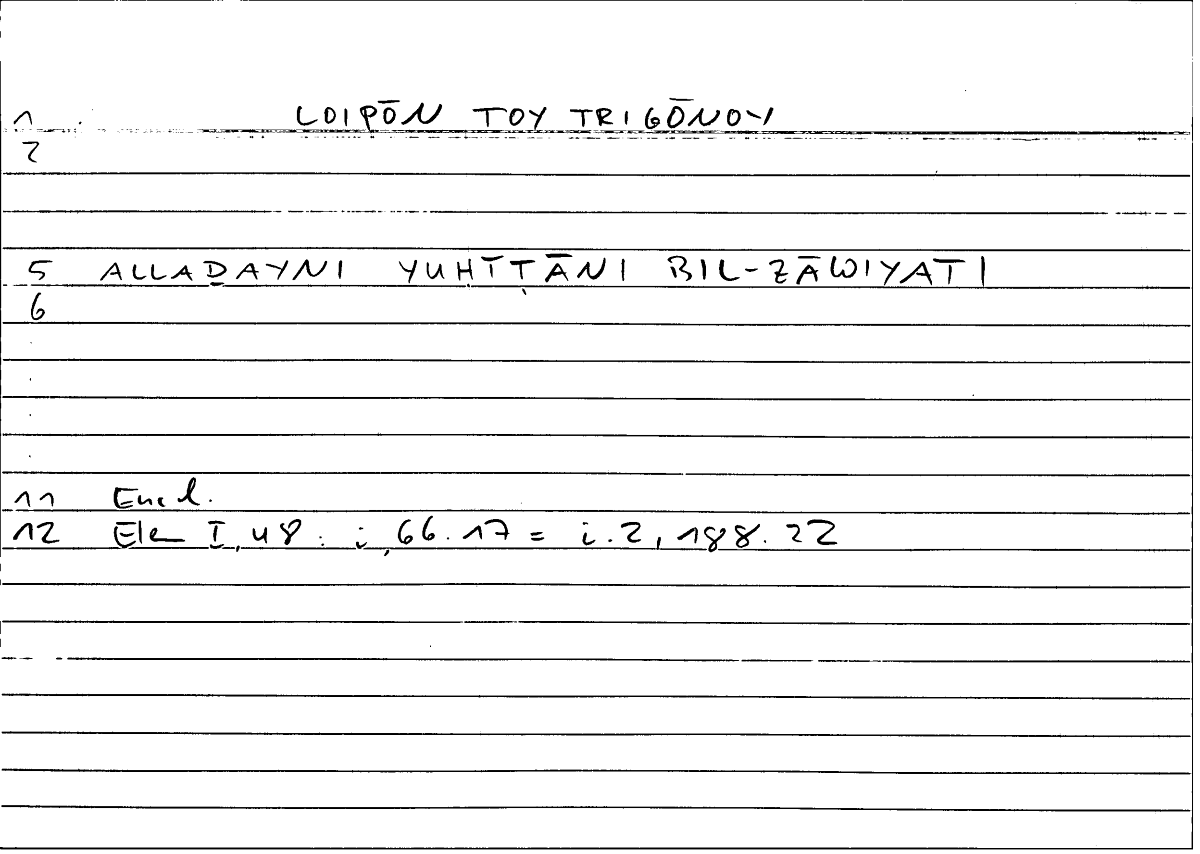 1 LOIPŌN TOY TRIGŌNOY
2
5 ALLAḎAYNI YUHĪṬĀNI BIL-ZĀWIYATI
6
11 Eucl.
12 Elem I, 48 : i, 66.17 = i.2, 188.22